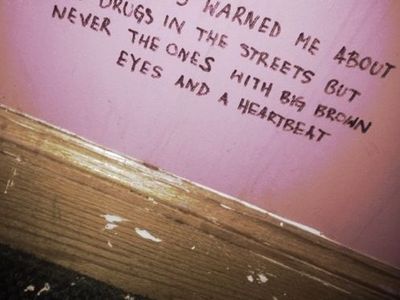 WARNED ME ABOUT
DRUGS IN THE STREETS BUT
NEVER THE ONES WITH BIG BROWN
EYES AND A HEARTBEAT